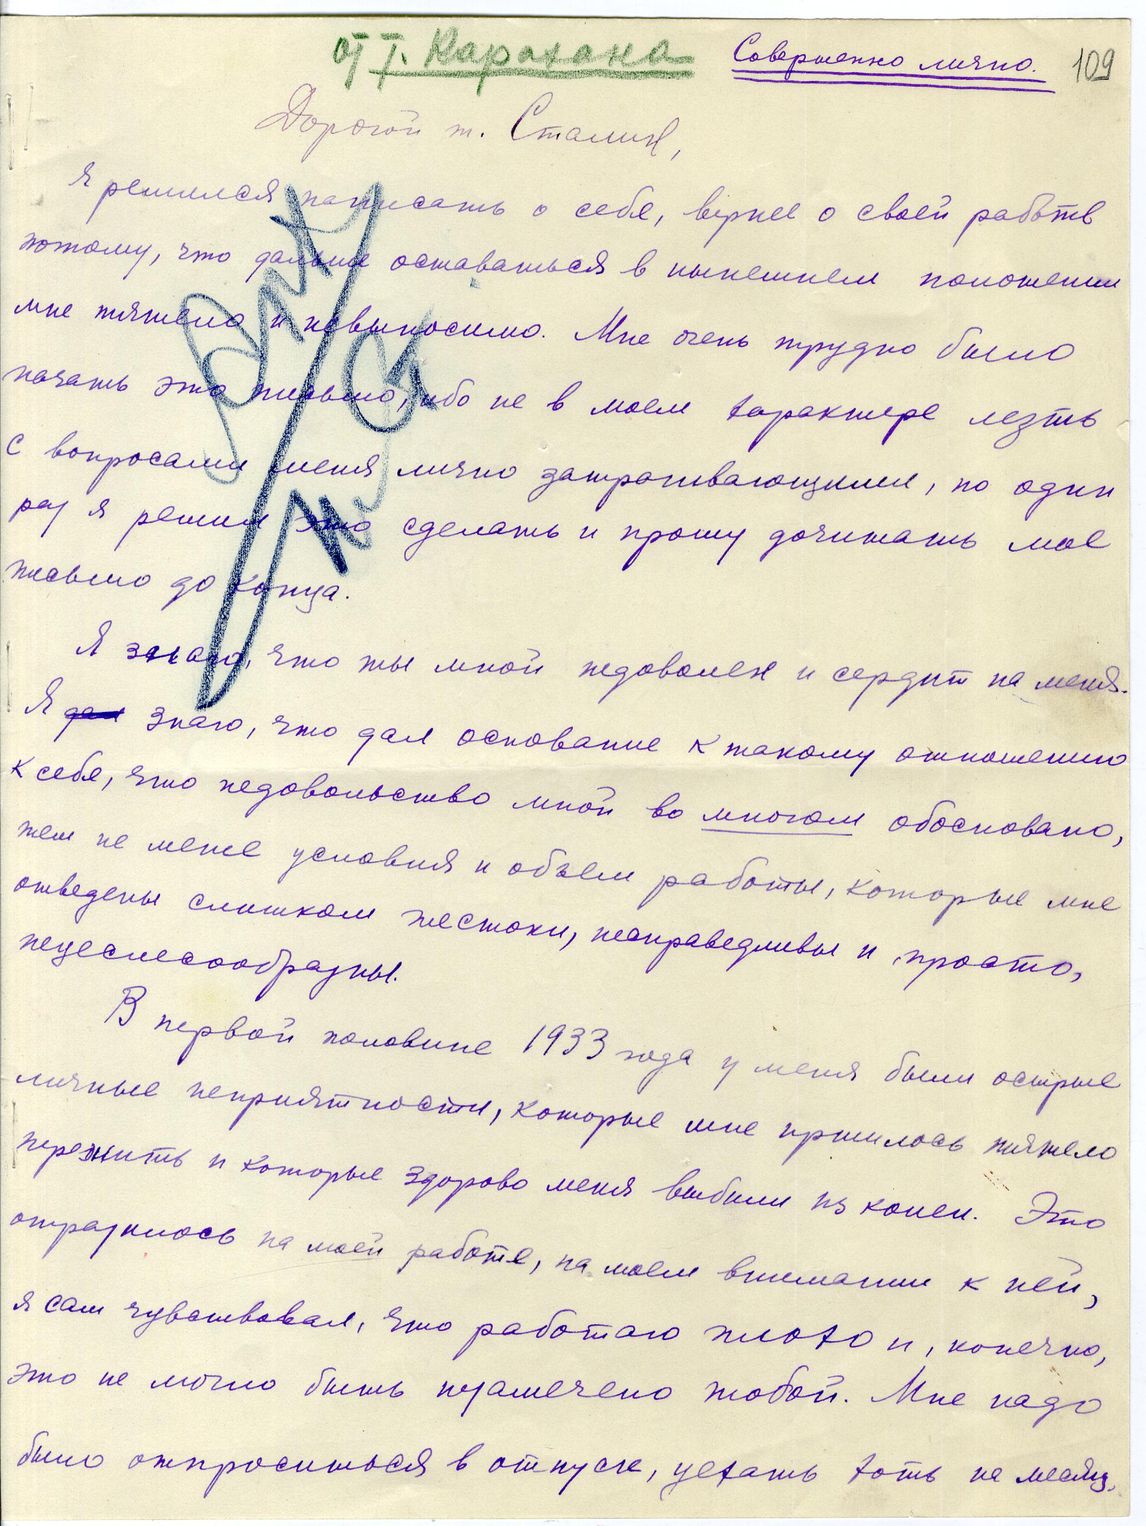 от т. Карахана
Совершенно лично.
109
Дорогой т. Сталин,
Я решился написать о себе, вернее о своей работе
потому, что дальше оставаться в нынешнем положении
мне тяжело и невыносимо. Мне очень трудно было
начать это письмо, ибо не в моем характере лезть
с вопросами меня лично затрагивающими, но один
раз я решил это сделать и прошу дочитать мое
письмо до конца.
Я знаю, что ты мной недоволен и сердит на меня.
Я дал знаю, что дал основание к такому отношению
к себе, что недовольство мной во многом обосновано,
тем не менее условия и объем работы, которые мне
отведены слишком жестоки, несправедливы и, просто,
нецелесообразны.
В первой половине 1933 года у меня были острые
личные неприятности, которые мне пришлось тяжело
пережить и которые здорово меня выбили из колеи. Это
отразилось на моей работе, на моем внимании к ней,
я сам чувствовал, что работаю плохо и, конечно,
это не могло быть незамечено тобой. Мне надо
было отпроситься в отпуск, уехать хоть на месяц,